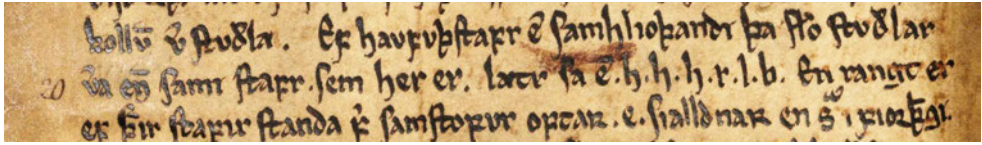 kollv̄ v̄ ſtvðla. Eꝼ havꝼvþſtaꝼr ē ſamhlioþandi þa ſl̄o ſtvðlar
20 v̄a en̄ ſami ſtaꝼr ſem her er. latr ſa ē. h. h. h. r. l. b. En rangt er
eꝼ þ̄ir ſtaꝼir ſtanda ꝼ͛ ſamſtoꝼvr optaʀ .e. ſialldnaʀ en ſͣ i ꝼiorþ̄gi.